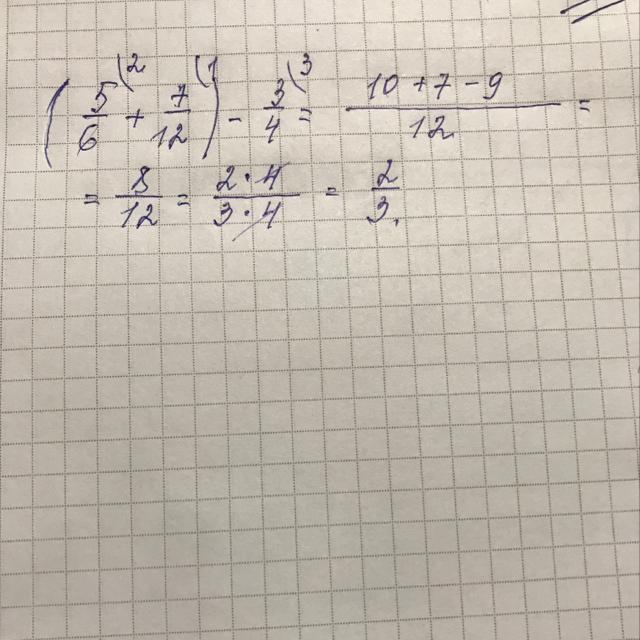 (5/6 \2 + 7/12 \1) - 3/4 \3 = (10 + 7 - 9)/12 =
= 8/12 = (2 · 4)/(3 · 4) = 2/3.